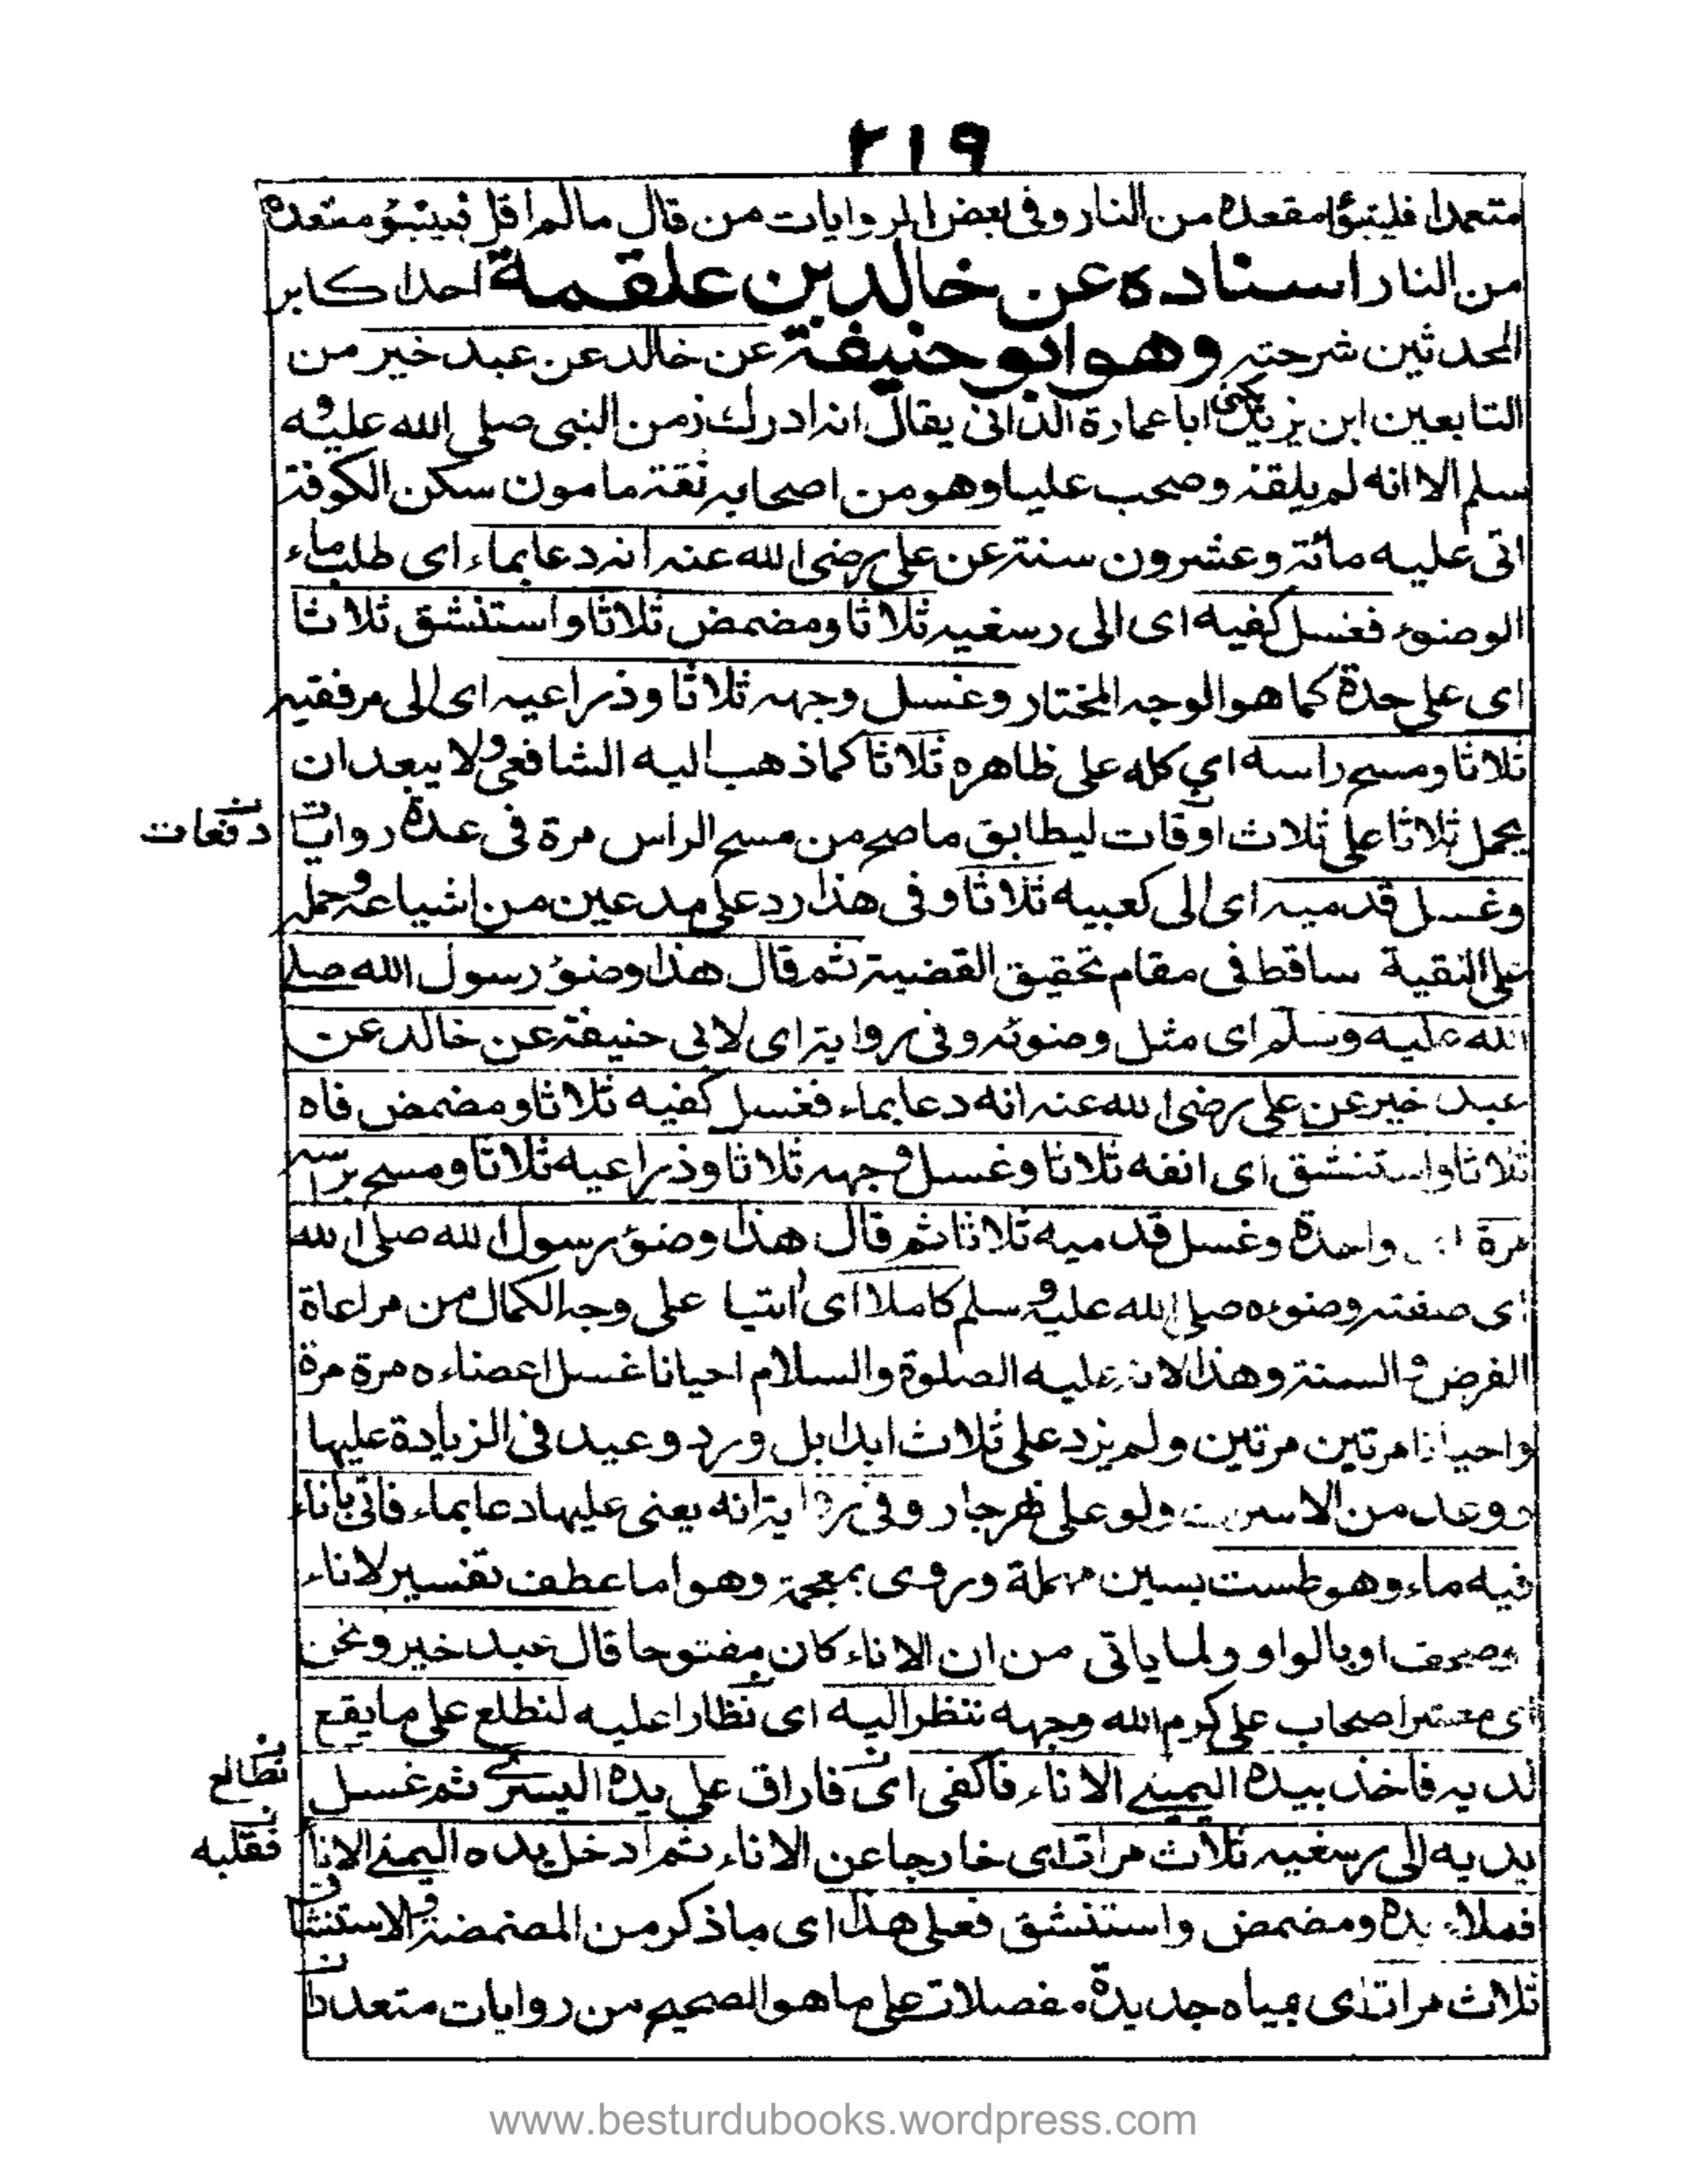 ٢١٩
متعمدا فليتبوأ مقعده من النار وفى بعض الروايات من قال ما لم اقل فليتبؤ مقعده
من النار اسناده عن خالد بن علقمة احد اكابر
المحدثين شرحته وهو ابو حنيفة عن خالد عن عبد خير من
التابعين ابن يزيد يكنى ابا عمارة يقال انه ادرك زمن النبى صلى الله عليه و
سلم الا انه لم يلقه وصحب عليا وهو من اصحابه ثقة مامون سكن الكوفة
اتى عليه مائة وعشرون سنة عن على رضى الله عنه انه دعا بماء اى طلب ماء
الوضوء فغسل كفيه اى الى رسغيه ثلاثا ومضمض ثلاثا واستنشق ثلاثا
اى على حدة كما هو الوجه المختار وغسل وجهه ثلاثا وذراعيه اى الى مرفقيه
ثلاثا ومسح راسه اى كله على ظاهره ثلاثا كما ذهب اليه الشافعى ولا يبعد ان
يحمل ثلاثا على ثلاث اوقات ليطابق ما صح من مسح الراس مرة فى عدة روايات
دفعات
وغسل قدميه اى الى كعبيه ثلاثا وفى هذا رد على مدعين من اشياعه وحمله
على التقية ساقط فى مقام تحقيق القضية ثم قال هذا وضوء رسول الله صلى
الله عليه وسلم اى مثل وضوئه وفى رواية اى لابى حنيفة عن خالد عن
عبد خير عن على رضى الله عنه انه دعا بماء فغسل كفيه ثلاثا ومضمض فاه
ثلاثا واستنشق اى انفه ثلاثا وغسل وجهه ثلاثا وذراعيه ثلاثا ومسح برأسه
مرة واحدة وغسل قدميه ثلاثا ثم قال هذا وضوء رسول الله صلى الله
اى صفته وضوءه صلى الله عليه وسلم كاملا اى اتيا على وجه الكمال من مراعاة
الفرض و السنة وهذا لانه عليه الصلوة والسلام احيانا غسل اعضاءه مرة مرة
واحيانا مرتين مرتين ولم يزد على ثلاث ابدا بل ورد وعيد فى الزيادة عليها
وعد من الاسراف ولو على نهر جار وفى رواية انه يعنى عليها دعا بماء فاتى باناء
فيه ماء وهو طست بسين مهملة وروى بمعجمة وهو اما عطف تفسير لاناء
او بالواو ولما ياتى من ان الاناء كان مفتوحا قال عبد خير ونحن
اى معشر اصحاب على كرم الله وجهه ننظر اليه اى نظارا عليه لنطلع على ما يقع
لديه فاخذ بيده اليمنے الاناء فاكفى اى فاراق على يده اليسرے ثم غسل
نطالع
يديه الى رسغيه ثلاث مرات اى خارجا عن الاناء ثم ادخل يده اليمنے الانا
فقلبه
فملاء يده ومضمض واستنشق فعل هذا اى ما ذكر من المضمضة و الاستنشا
ثلاث مرات اى بمياه جديدة مفصلات على ما هو الصحيح من روايات متعددة
www.besturdubooks.wordpress.com